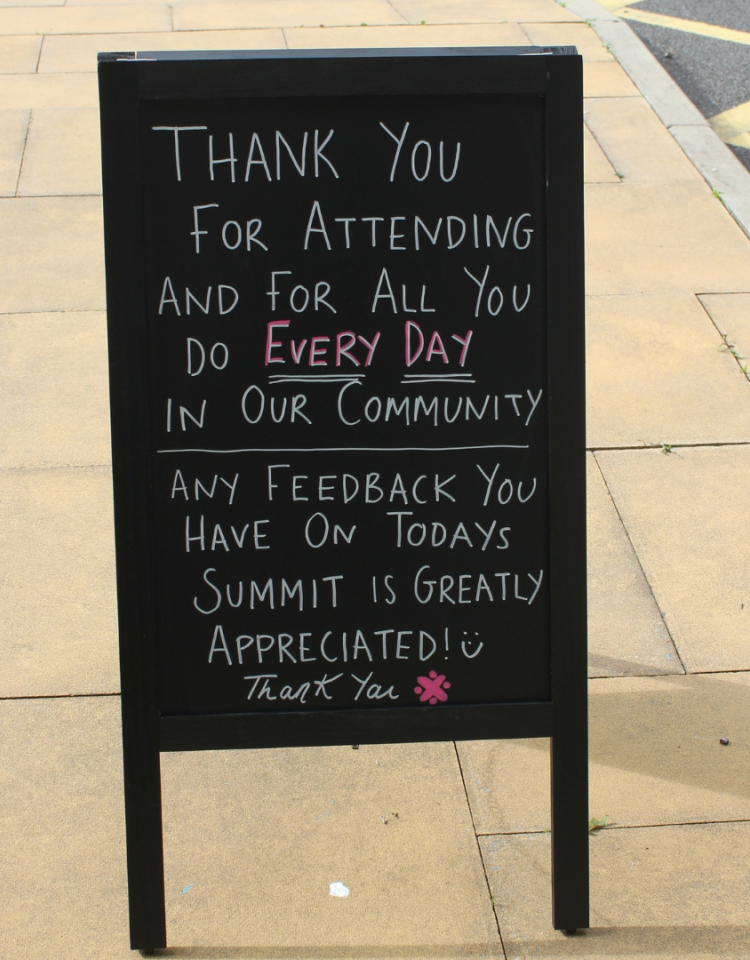 THANK YOU
FOR ATTENDING
AND FOR ALL YOU
DO EVERY DAY
IN OUR COMMUNITY
ANY FEEDBACK YOU
HAVE ON TODAYS
SUMMIT IS GREATLY
APPRECIATED!
Thank You